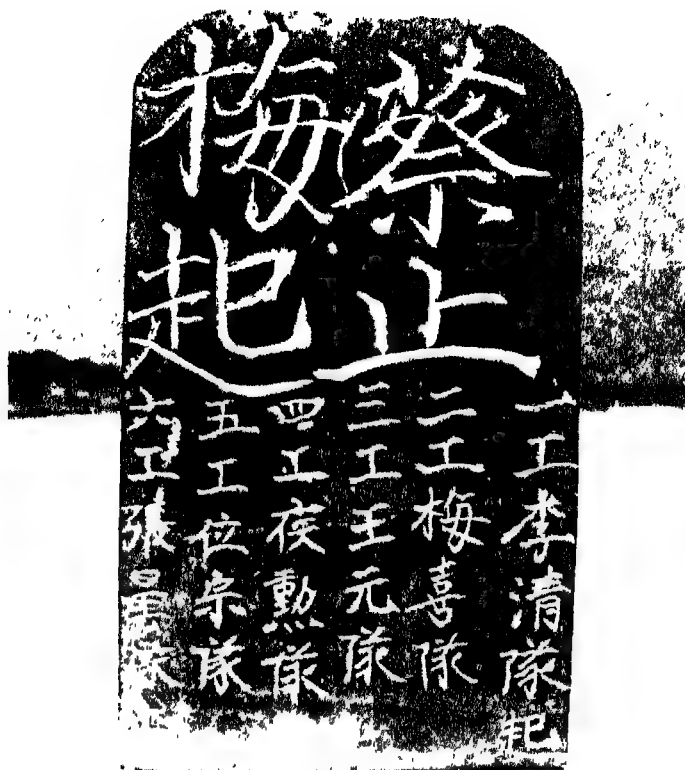 蔡止
梅起
一工李清隊起
二工梅喜隊
三工王元隊
四工侯勲隊
五工位宗隊
六工張隊